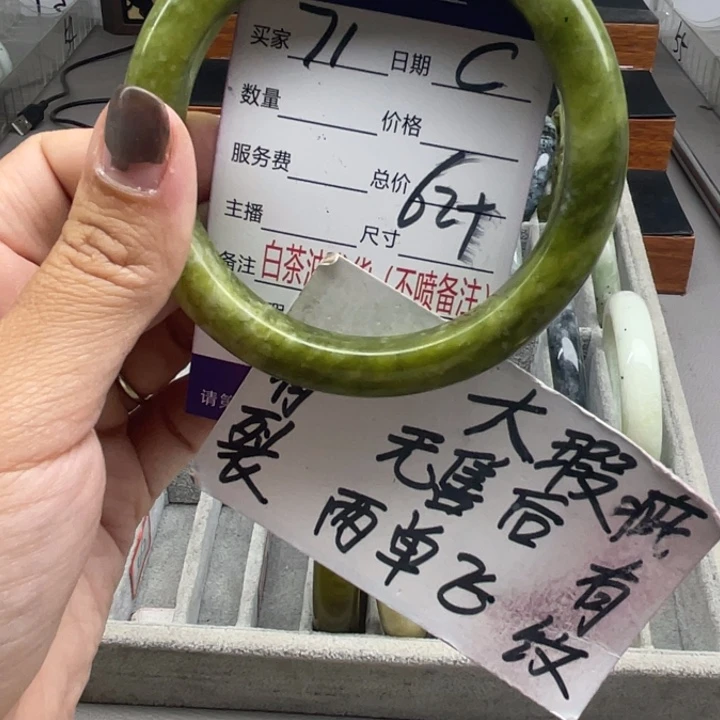 买家 71 日期 C
数量 价格
服务费 总价 62+
主播 尺寸
备注 白茶 (不喷备注)
请
大瑕疵
无售后 有纹
两单飞
有裂